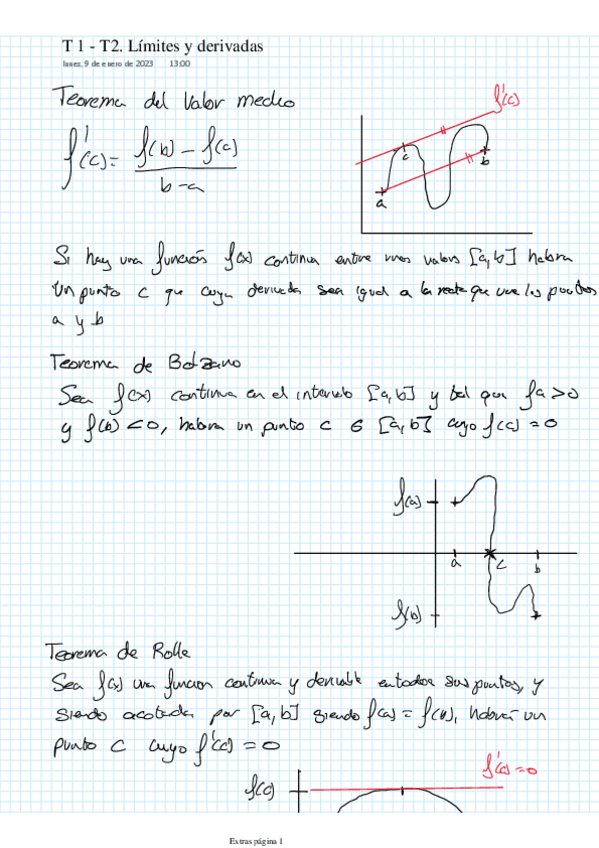 T 1 - T2. Límites y derivadas
lunes, 9 de enero de 2023 13:00
Teorema del Valor medio
f'(c)
f'(c) = f(b) - f(a)
b - a
c
a
b
Si hay una función f(x) continua entre unos valores [a, b] habra
un punto c que cuya derivada sea igual a la recta que une los puntos
a y b
Teorema de Bolzano
Sea f(x) continua en el intervalo [a, b] y tal que fa > 0
y f(b) < 0, habra un punto c ∈ [a, b] cuyo f(c) = 0
f(a)
a
c
b
f(b)
Teorema de Rolle
Sea f(x) una funcion continua y derivable en todos sus puntos, y
siendo acotada por [a, b] siendo f(a) = f(b), habrá un
punto c cuyo f'(c) = 0
f'(c) = 0
f(c)
Extras página 1